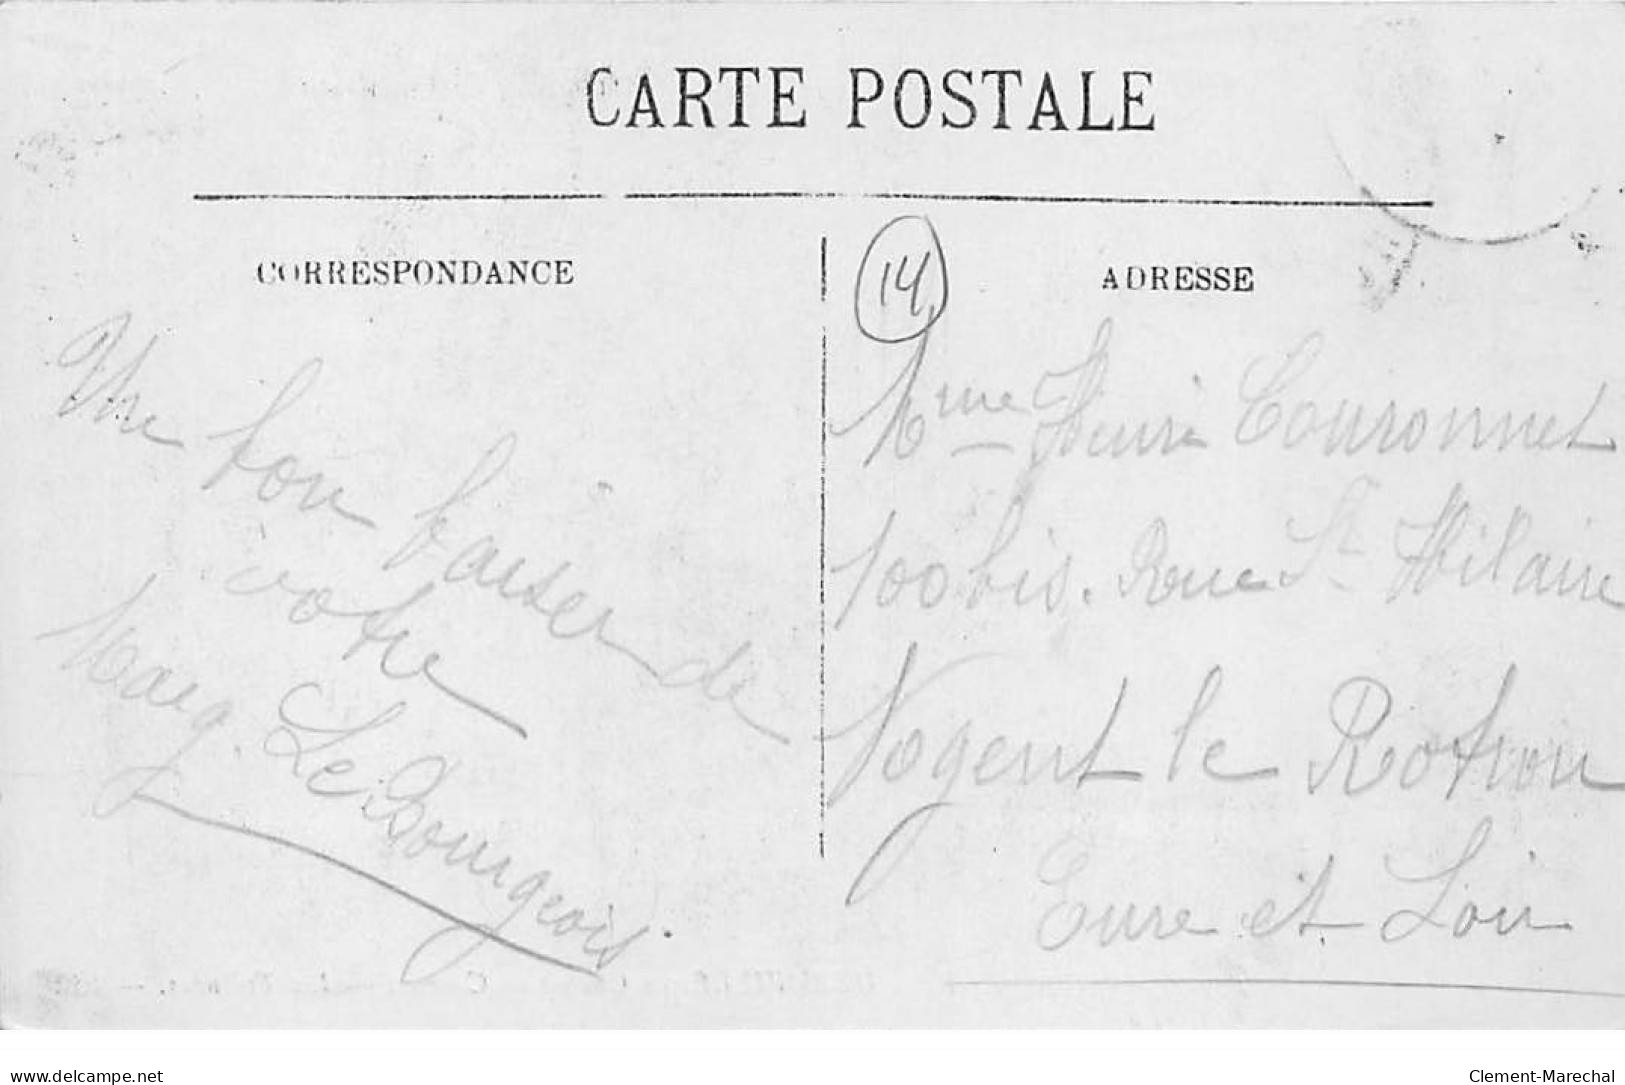 CARTE POSTALE
CORRESPONDANCE
Une bon baiser de
votre
Marg. Le Bourgeois.
14
ADRESSE
Mme Henri Couronnet
100 bis. Rue St Hilaire
Nogent le Rotrou
Eure et Loir
www.delcampe.net
Clement-Marechal